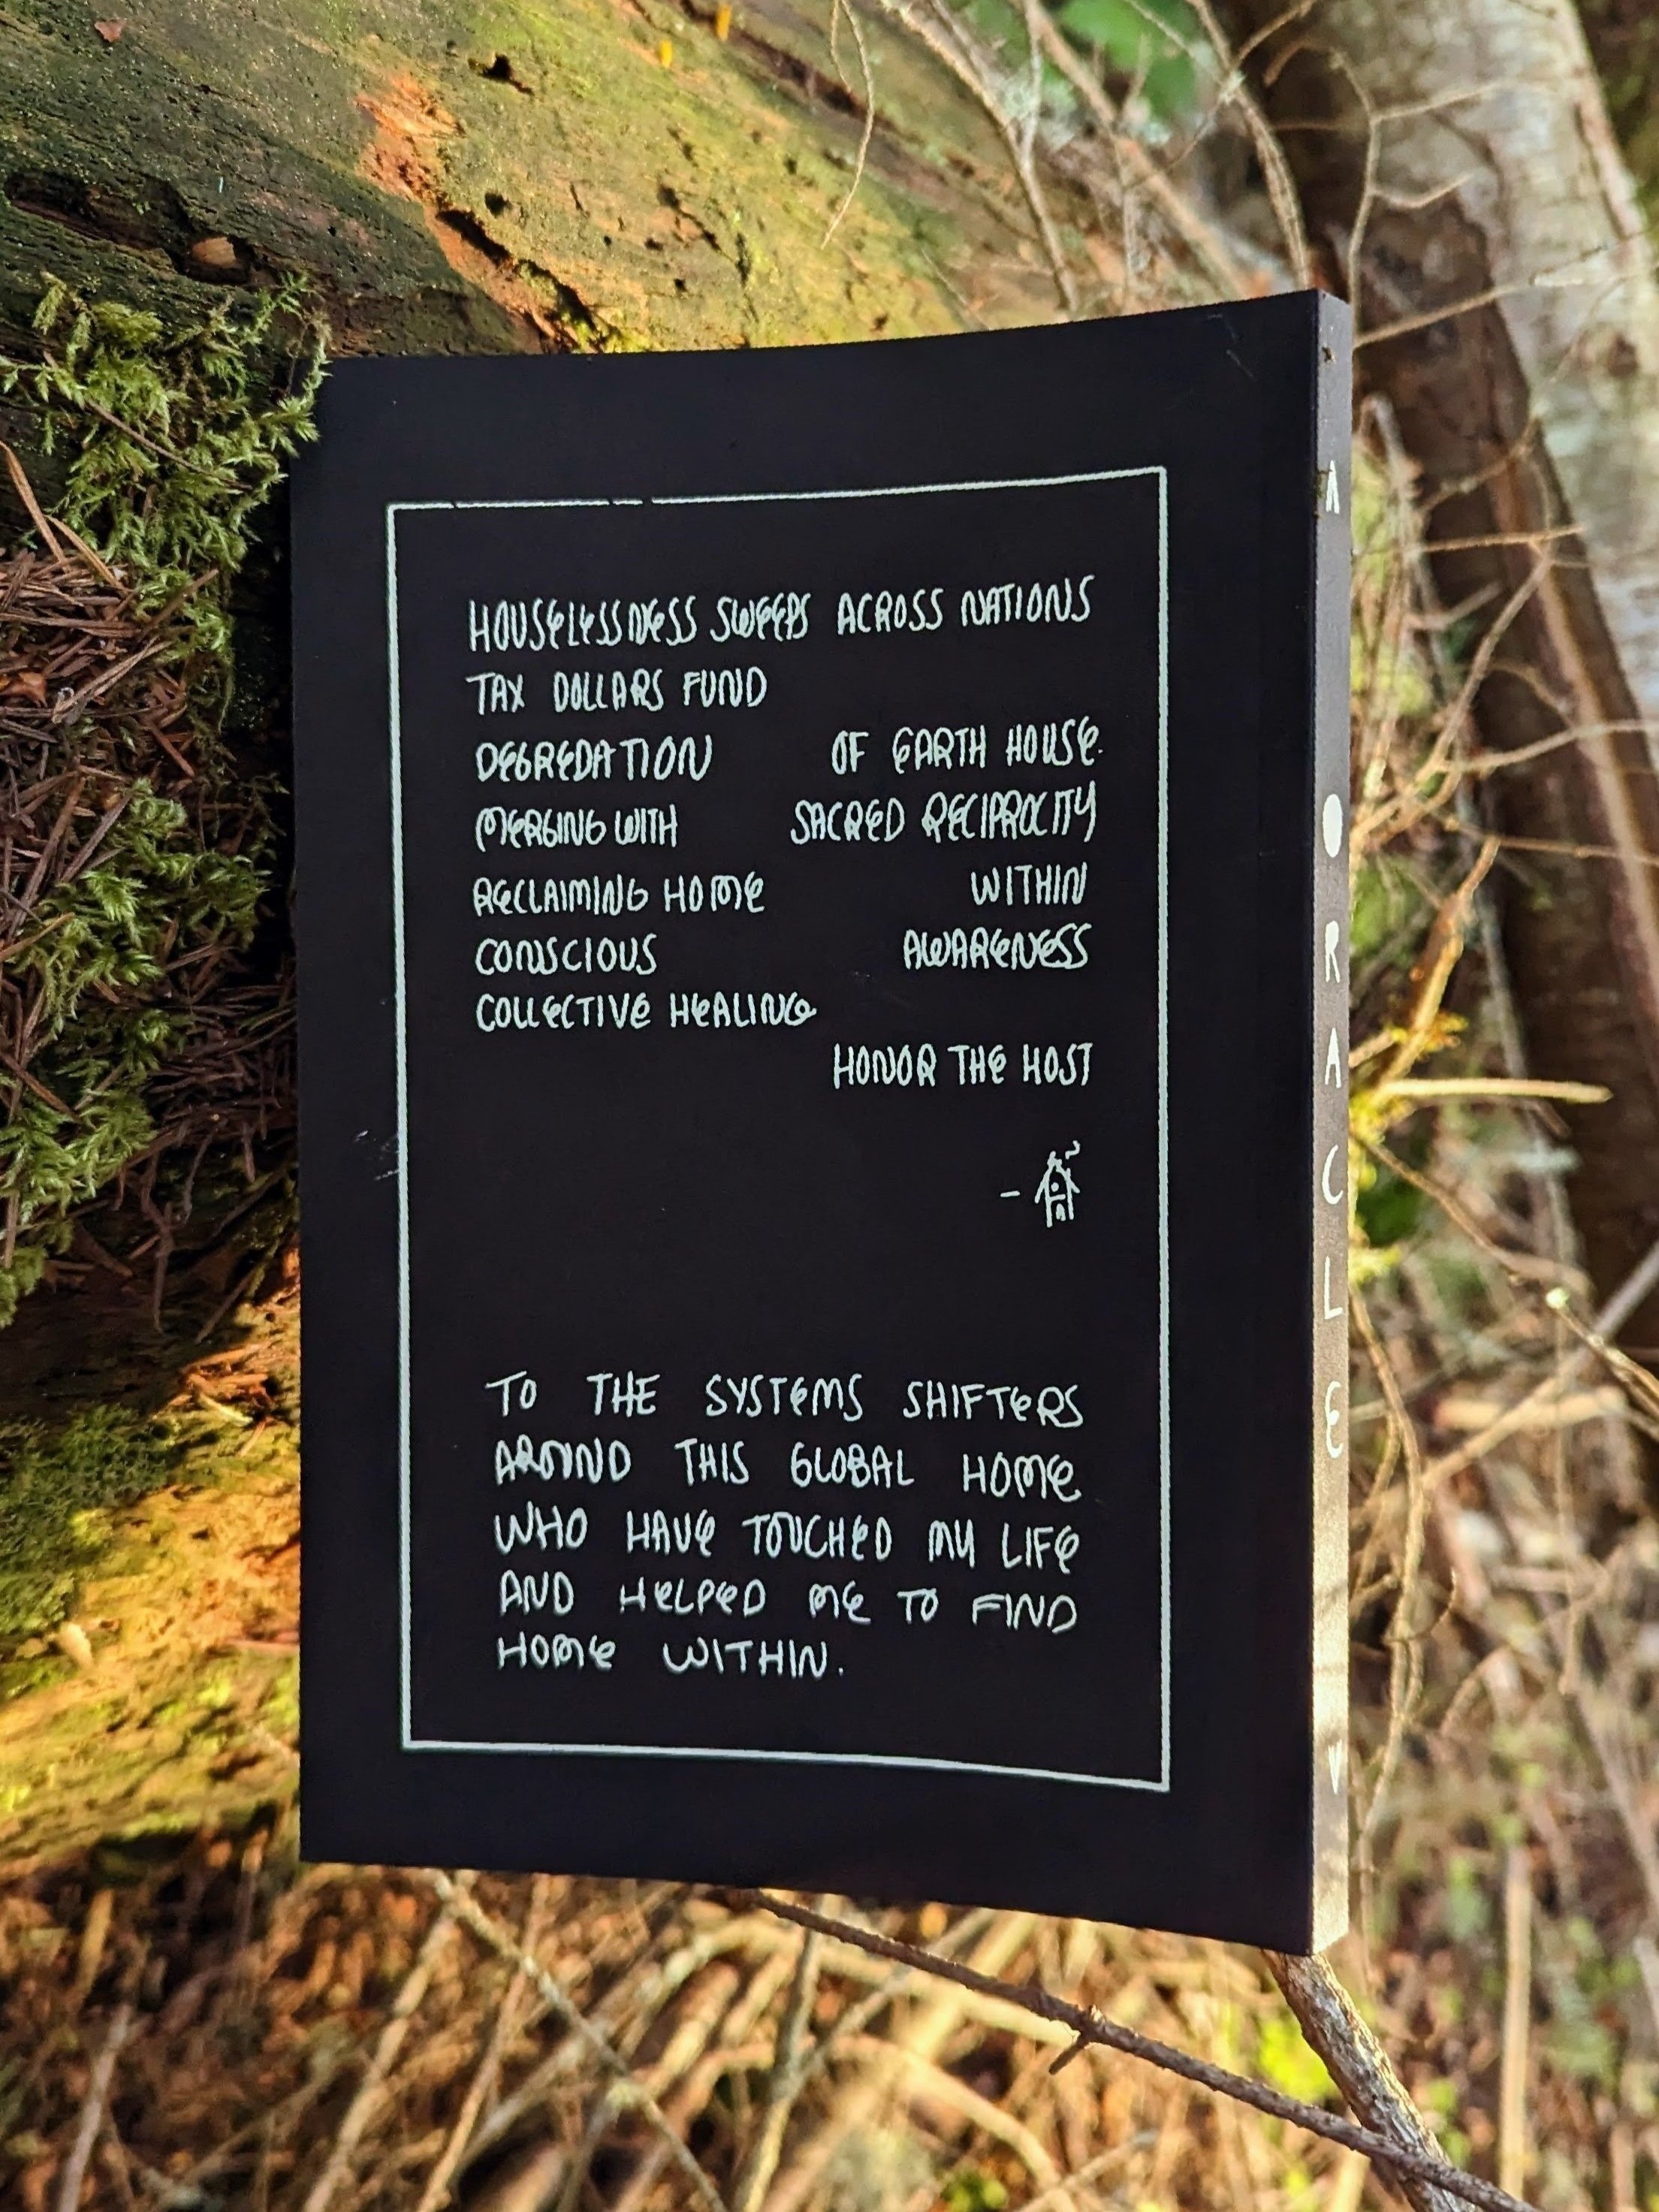 HOUSELESSNESS SWEEPS ACROSS NATIONS
TAX DOLLARS FUND
DEGREDATION OF EARTH HOUSE
MERGING WITH SACRED RECIPROCITY
RECLAIMING HOME WITHIN
CONSCIOUS AWARENESS
COLLECTIVE HEALING
HONOR THE HOST
-
TO THE SYSTEMS SHIFTERS
AROUND THIS GLOBAL HOME
WHO HAVE TOUCHED MY LIFE
AND HELPED ME TO FIND
HOME WITHIN.
ORACLE